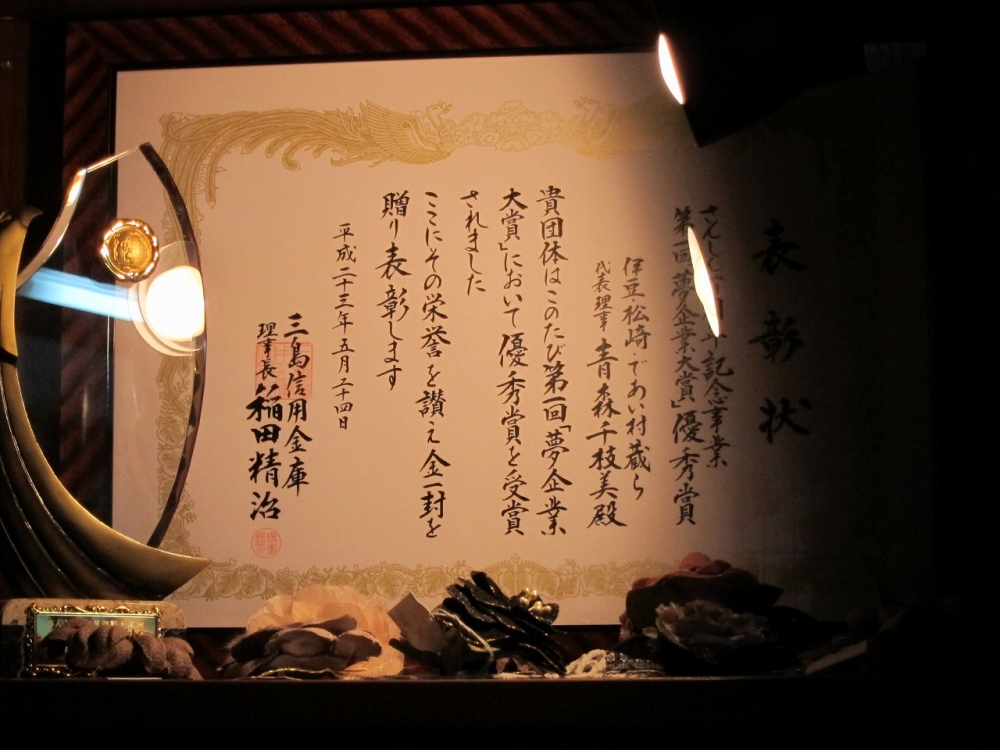 表彰状
さんしん 記念事業
第一回「夢企業大賞」優秀賞
伊豆松崎・であい村蔵ら
代表理事 青森千枝美殿
貴団体はこのたび第一回「夢企業
大賞」において優秀賞を受賞
されました
ここにその栄誉を讃え金一封を
贈り表彰します
平成二十三年五月二十四日
三島信用金庫
理事長 稲田精治